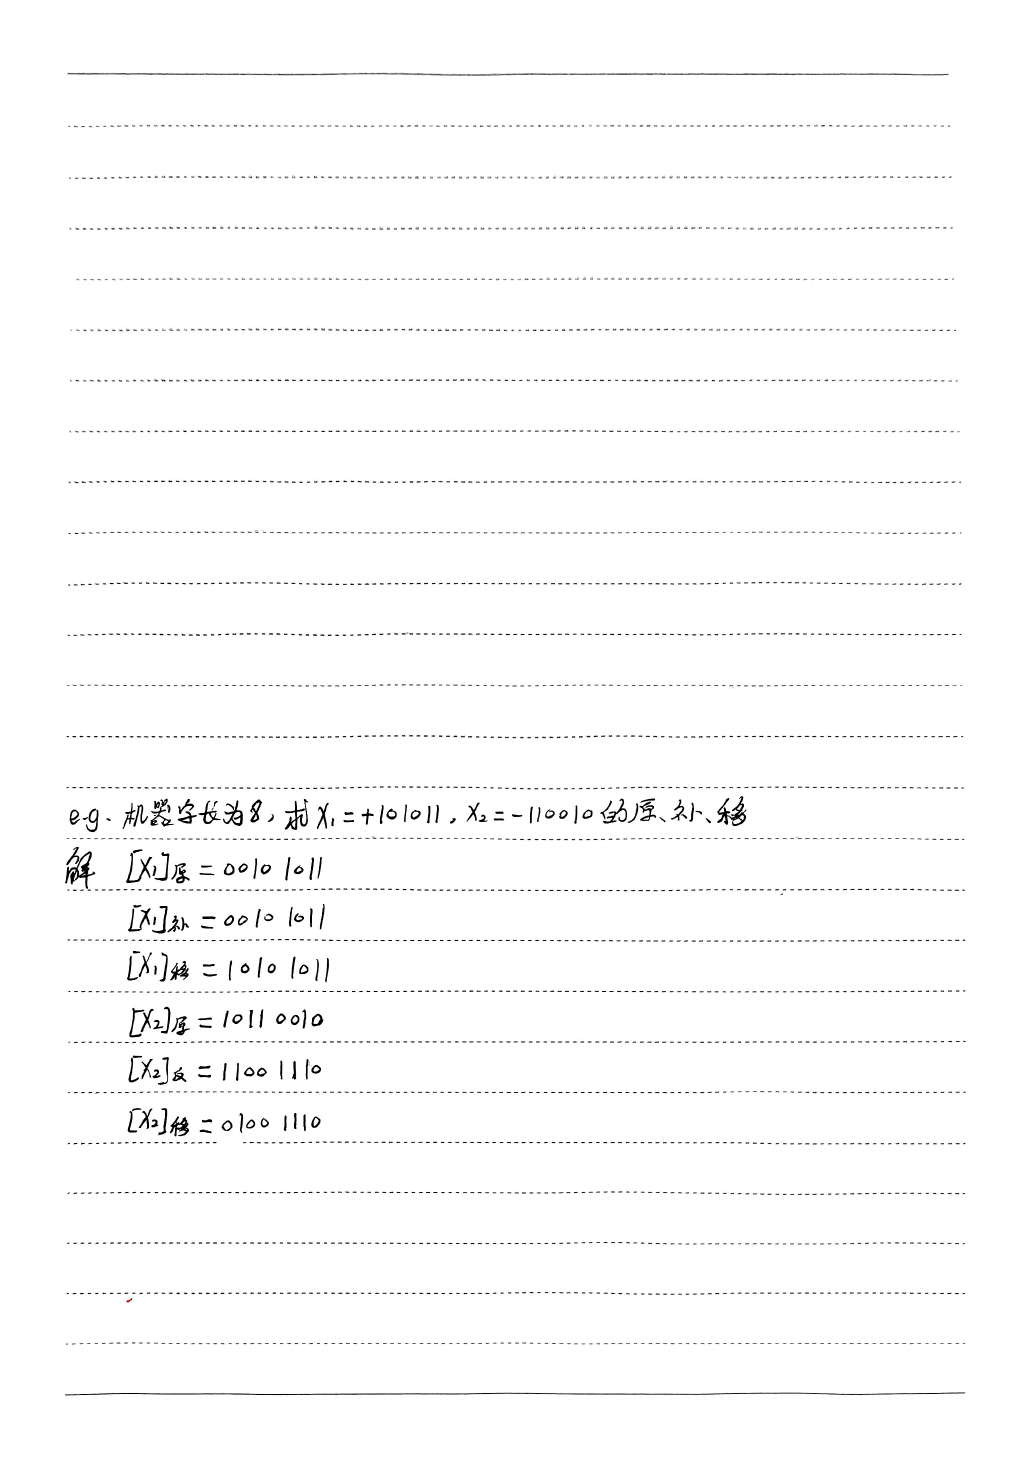 e.g. 机器字长为8, 求X₁=+101011, X₂=-110010的原、补、移
解 [X₁]原=0010 1011
[X₁]补=0010 1011
[X₁]移=1010 1011
[X₂]原=1011 0010
[X₂]反=1100 1110
[X₂]移=0100 1110